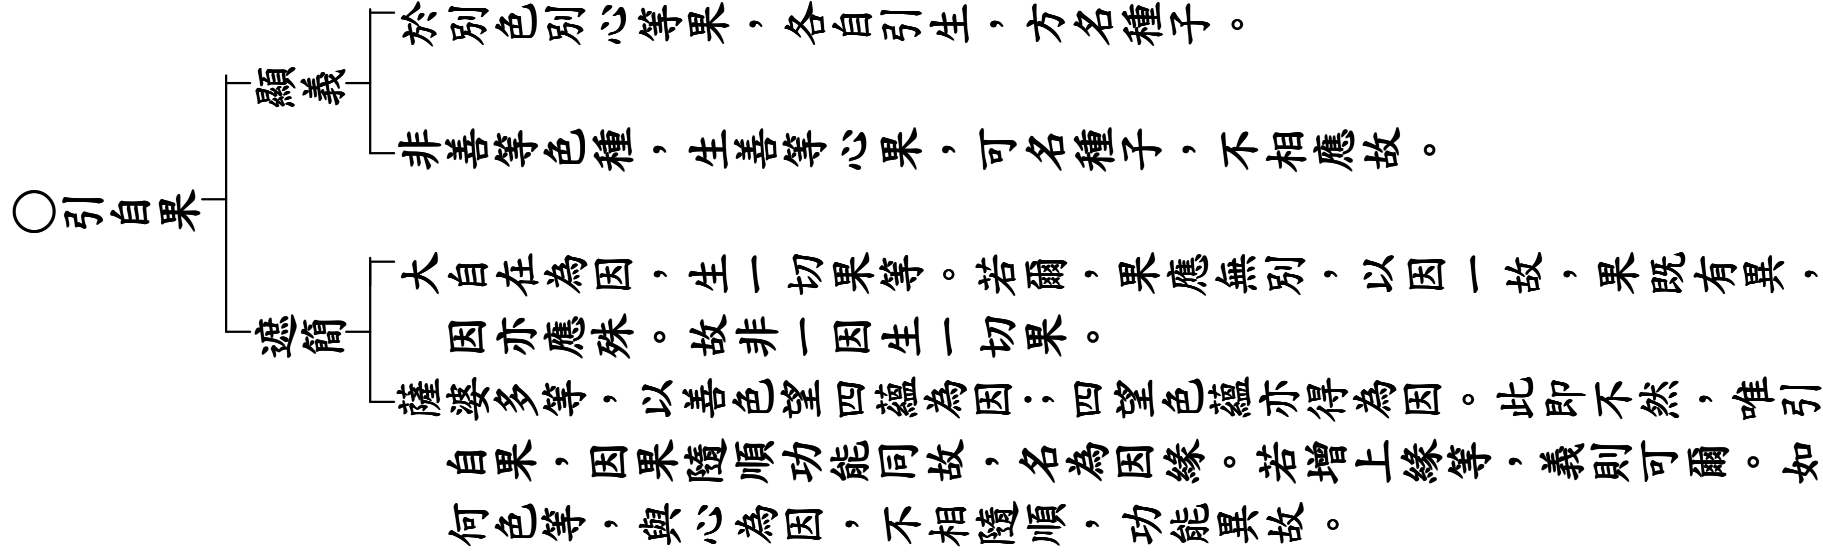 ○引自果
顯義
於別色別心等果，各自引生，方名種子。
非善等色種，生善等心果，可名種子，不相應故。
遮簡
大自在為因，生一切果等。若爾，果應無別，以因一故，果既有異，
因亦應殊。故非一因生一切果。
薩婆多等，以善色望四蘊為因；四望色蘊亦得為因。此即不然，唯引
自果，因果隨順功能同故，名為因緣。若增上緣等，義則可爾。如
何色等，與心為因，不相隨順，功能異故。